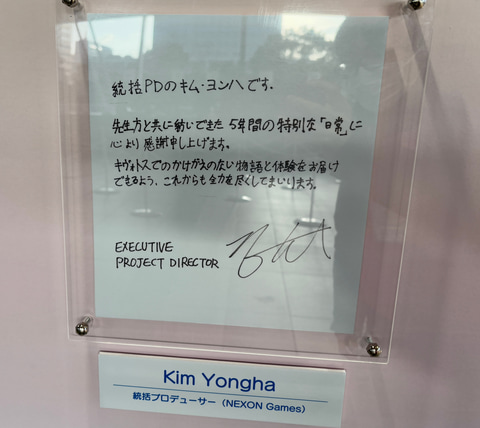 統括PDのキム・ヨンハです。
先生方と共に紡いできた5年間の特別な「日常」に
心より感謝申し上げます。
キヴォトスでのかけがえのない物語と体験をお届け
できるよう、これからも全力を尽くしてまいります。
EXECUTIVE
PROJECT DIRECTOR
Kim Yongha
統括プロデューサー（NEXON Games）